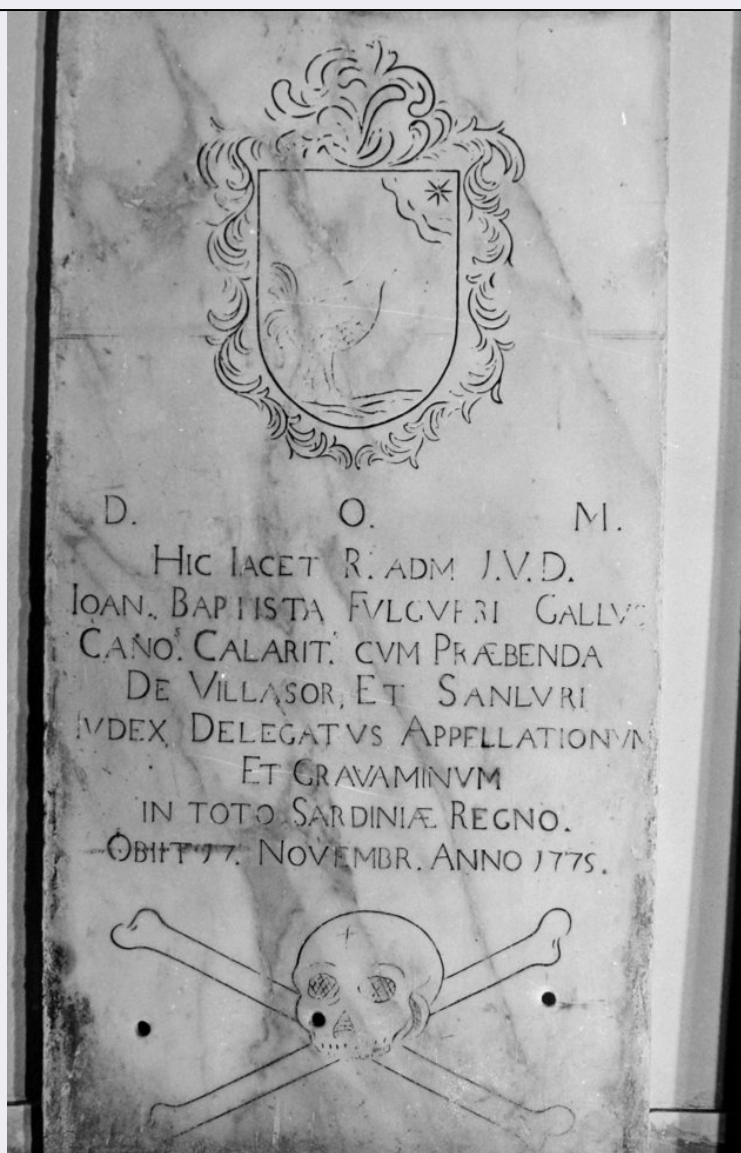 D. O. M.
HIC IACET R. ADM J.V.D.
IOAN. BAPTISTA FVLGVERI GALLVS
CANO.^s CALARIT. CVM PRÆBENDA
DE VILLASOR, ET SANLVRI
IVDEX DELEGATVS APPELLATIONVM
ET GRAVAMINVM
IN TOTO SARDINIÆ REGNO.
OBIIT 17. NOVEMBR. ANNO 1775.